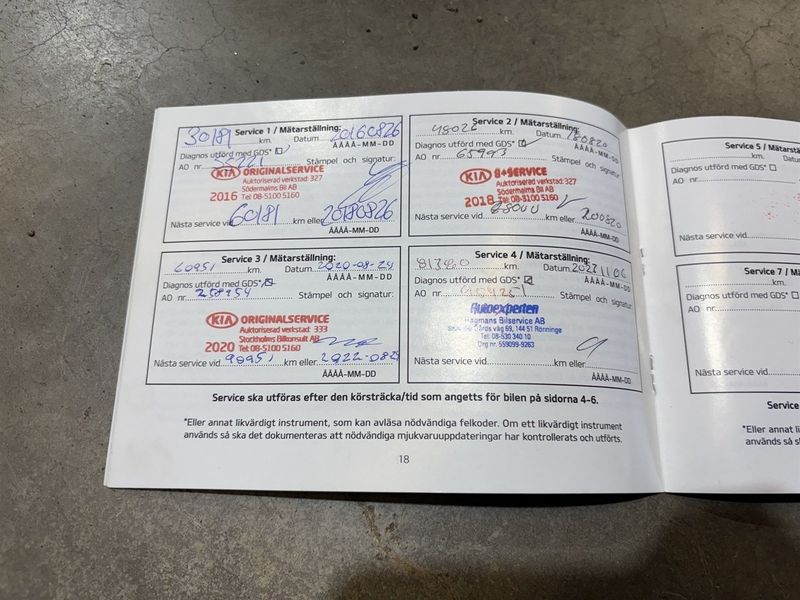 Service 1 / Mätarställning:
30181 km. Datum 20160826
ÅÅÅÅ-MM-DD
Diagnos utförd med GDS*
AO nr Stämpel och signatur:
KIA ORIGINALSERVICE
Auktoriserad verkstad: 327
Södermalms Bil AB
2016 Tel: 08-5100 5160
Nästa service vid 60181 km eller 20180826
ÅÅÅÅ-MM-DD
Service 2 / Mätarställning:
48026 km. Datum 180820
ÅÅÅÅ-MM-DD
Diagnos utförd med GDS*
AO nr 65993 Stämpel och signatur:
KIA
Auktoriserad verkstad: 327
Södermalms Bil AB
2018 Tel: 08-5100 5160
Nästa service vid km eller 200820
ÅÅÅÅ-MM-DD
Service 3 / Mätarställning:
60951 km. Datum 2020-08-24
ÅÅÅÅ-MM-DD
Diagnos utförd med GDS*
AO nr 258954 Stämpel och signatur:
KIA ORIGINALSERVICE
Auktoriserad verkstad: 333
Stockholms Bilkonsult AB
2020 Tel: 08-5100 5160
Nästa service vid 90951 km eller
ÅÅÅÅ-MM-DD
Service 4 / Mätarställning:
km. Datum
ÅÅÅÅ-MM-DD
Diagnos utförd med GDS*
AO nr Stämpel och signatur:
Autoexperten
Hagmans Bilservice AB
69, 144 51 Rönninge
Tel: 08-530 340 10
Org nr. 559099-9263
Nästa service vid km eller
ÅÅÅÅ-MM-DD
Service ska utföras efter den körsträcka/tid som angetts för bilen på sidorna 4-6.
*Eller annat likvärdigt instrument, som kan avläsa nödvändiga felkoder. Om ett likvärdigt instrument
används så ska det dokumenteras att nödvändiga mjukvaruuppdateringar har kontrollerats och utförts.
18
Service 5 /
km.
Diagnos utförd med GDS*
AO nr
Nästa service vid
Service 7 /
km.
Diagnos utförd med GDS*
AO nr
Nästa service vid
Service
*Eller annat
används så